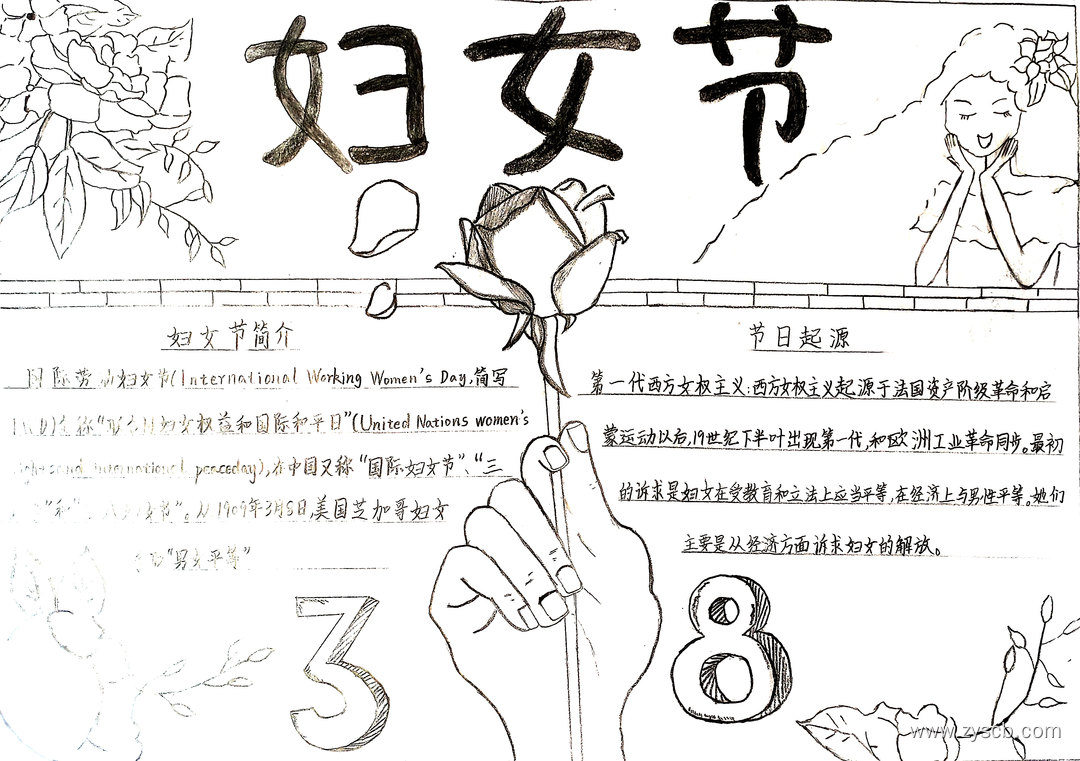 妇女节
妇女节简介
国际劳动妇女节(International Working Women's Day,简写
称"妇女权益和国际和平日"(United Nations women's
and international peaceday),在中国又称"国际妇女节"、"三
节"。从1909年3月8日,美国芝加哥妇女
"男女平等"
节日起源
第一代西方女权主义:西方女权主义起源于法国资产阶级革命和启
蒙运动以后,19世纪下半叶出现第一代,和欧洲工业革命同步。最初
的诉求是妇女在受教育和立法上应当平等,在经济上与男性平等。她们
主要是从经济方面诉求妇女的解放。
3 8
www.zyscb.com